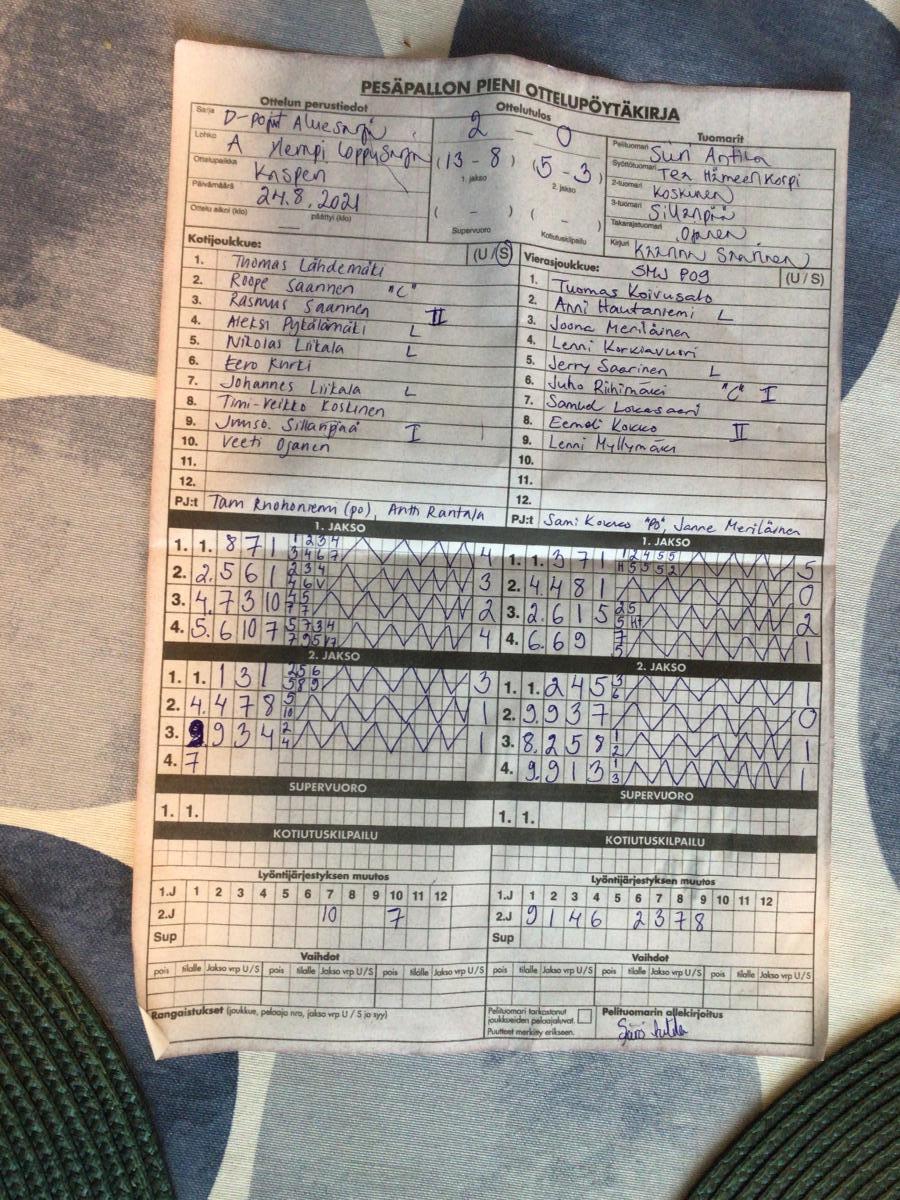 PESÄPALLON PIENI OTTELUPÖYTÄKIRJA
Ottelun perustiedot
Sarja D-pojat Aluesarja
Lohko A Hempi loppusarja
Ottelupaikka Kaspen
Päivämäärä 24.8.2021
Ottelu alkoi (klo) — päättyi (klo)
Ottelutulos
2 — 0
(13 - 8) (5 - 3)
1. jakso 2. jakso
( - ) ( - )
Supervuoro Kotiutuskilpailu
Tuomarit
Pelituomari Siiri Anttila
Syöttötuomari Tea Hämeenkorpi
2-tuomari Koskinen
3-tuomari Sillanpää
Takarajatuomari Ojanen
Kirjuri Saarinen
Kotijoukkue: (U/S)
1. Thomas Lähdemäki
2. Roope Saannen "C"
3. Rasmus Saannen II
4. Aleksi Pykälämäki L
5. Nikolas Liikala L
6. Eero Kurki
7. Johannes Liikala L
8. Timi-Veikko Koskinen
9. Juuso Sillanpää I
10. Veeti Ojanen
11.
12.
PJ:t Tami Ruohoniemi (po), Antti Rantala
Vierasjoukkue: SMJ pog (U/S)
1. Tuomas Koivusalo
2. Anni Hautaniemi L
3. Joona Meriläinen
4. Lenni Korkiavuori
5. Jerry Saarinen L
6. Juho Riihimäki "C" I
7. Samuel Lokasaari
8. Eemeli Kokko II
9. Lenni Myllymäki
10.
11.
12.
PJ:t Sami Kokko "PO", Janne Meriläinen
1. JAKSO
1. 1. 8 7 1 1 2 3 4 4
3 4 6 7
2. 2. 5 6 1 2 3 4 3
4 6 V
3. 4. 7 3 10 4 5 2
7 7
4. 5. 6 10 7 5 7 3 4 4
7 9 5 V7
1. JAKSO
1. 1. 3 7 1 1 2 4 5 5 5
H 5 5 5 2
2. 4. 4 8 1 0
3. 2. 6 1 5 2 5 2
5 H1
4. 6. 6 9 7 1
5
2. JAKSO
1. 1. 1 3 1 2 5 6 3
5 8 9
2. 4. 4 7 8 5 1
10
3. 9. 9 3 4 2 1
4
4. 7
2. JAKSO
1. 1. 2 4 5 3 1
6
2. 9. 9 3 7 0
3. 8. 2 5 8 1 1
2
4. 9. 9 1 3 1 1
3
SUPERVUORO
1. 1.
SUPERVUORO
1. 1.
KOTIUTUSKILPAILU
KOTIUTUSKILPAILU
Lyöntijärjestyksen muutos
1.J 1 2 3 4 5 6 7 8 9 10 11 12
2.J 10 7
Sup
Lyöntijärjestyksen muutos
1.J 1 2 3 4 5 6 7 8 9 10 11 12
2.J 9 1 4 6 2 3 7 8
Sup
Vaihdot
pois tilalle Jakso vrp U/S pois tilalle Jakso vrp U/S pois tilalle Jakso vrp U/S
Vaihdot
pois tilalle Jakso vrp U/S pois tilalle Jakso vrp U/S pois tilalle Jakso vrp U/S
Rangaistukset (joukkue, pelaaja nro, jakso vrp U / S ja syy)
Pelituomari tarkastanut
joukkueiden pelaajaluvat.
Puutteet merkitty erikseen.
Pelituomarin allekirjoitus